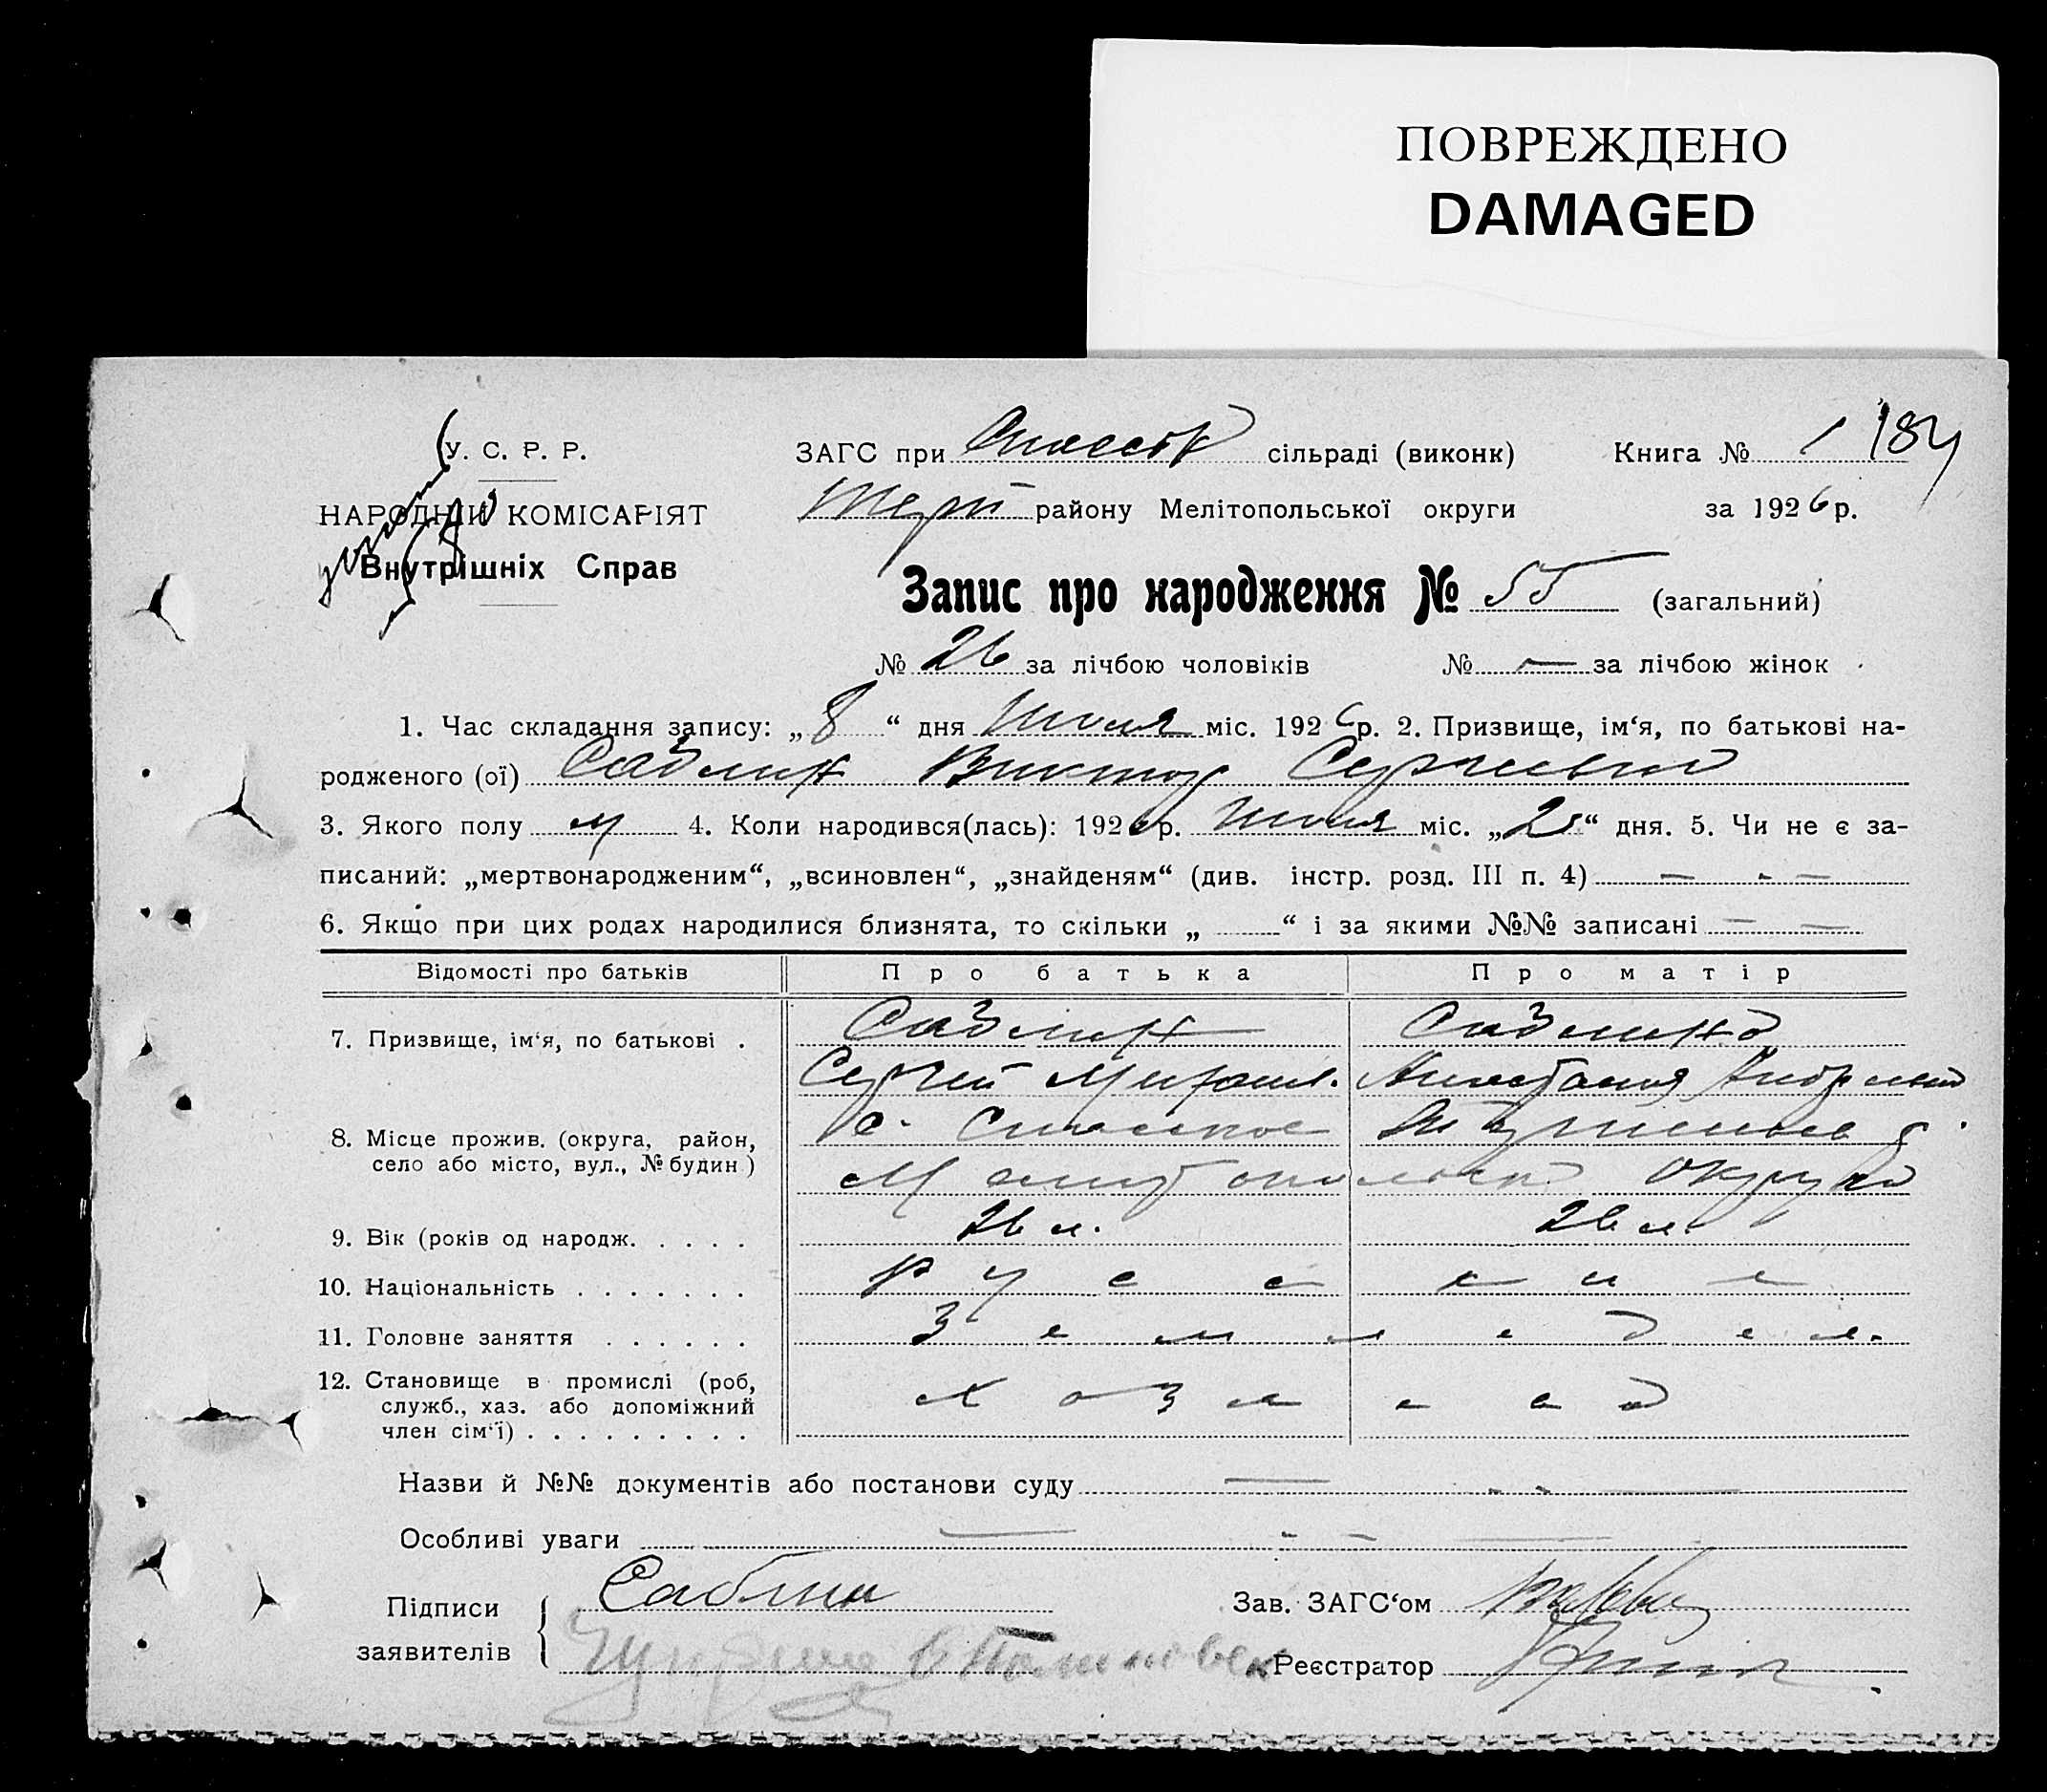 ПОВРЕЖДЕНО
DAMAGED
У. С. Р. Р.
НАРОДНІЙ КОМІСАРІЯТ
Внутрішніх Справ
ЗАГС при Спасск сільраді (виконк) Книга № 1 184
Терп району Мелітопольської округи за 1926 р.
Запис про народження № 55 (загальний)
№ 26 за лічбою чоловіків № — за лічбою жінок
1. Час складання запису: „8“ дня Июля міс. 1926 р. 2. Призвище, ім‘я, по батькові на-
родженого (ої) Саблин Виктор Сергиевич
3. Якого полу м 4. Коли народився(лась): 1926 р. Июля міс. „2“ дня. 5. Чи не є за-
писаний: „мертвонародженим“, „всиновлен“, „знайденям“ (див. інстр. розд. III п. 4) — - —
6. Якщо при цих родах народилися близнята, то скільки „ “ і за якими №№ записані — —
Відомості про батьків Про батька Про матір
7. Призвище, ім‘я, по батькові . Саблин Саблина
Сергий Михаил. Анастасия Андреевна
8. Місце прожив. (округа, район, с. Спасское
село або місто, вул., № будин) Мелитопольск округа
9. Вік (років од народж. . . . . 26 л. 26 л.
10. Національність . . . . . . . Русские
11. Головне заняття . . . . . . Земледел.
12. Становище в промислі (роб,
служб., хаз. або допоміжний
член сім‘ї) . . . . . . . . .
Назви й №№ документів або постанови суду — - - —
Особливі уваги — - - —
Підписи Саблин Зав. ЗАГС‘ом
заявителів Реєстратор